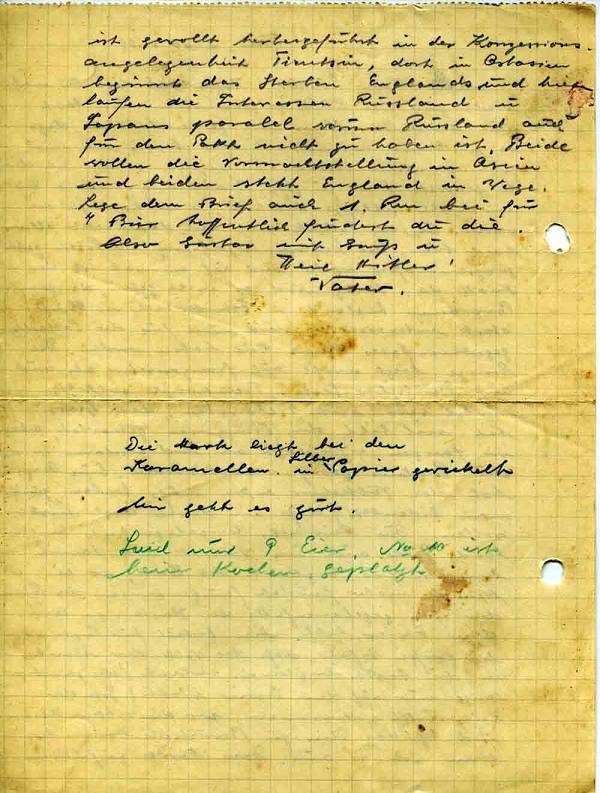 ist gewollt herbeigeführt in der Konzessions-
angelegenheit Tientsin, dort in Ostasien
beginnt das Sterben Englands und hier
laufen die Interessen Russland u
Japans paralel wenn Russland auch
für den Pakt nicht zu haben ist. Beide
wollen die Vormachtstellung in Asien
und beiden steht England im Wege.
Lege dem Brief auch 1. Rm bei für
4 Bier hoffentlich findest du die.
Also Gustav mit Gruß u
Heil Hitler!
Vater.
Die Mark liegt bei den
Karamellen. in Silber Papier gewickelt
Mir geht es gut.
Sind nur 9 Eier, No 10 ist
beim Kochen geplatzt